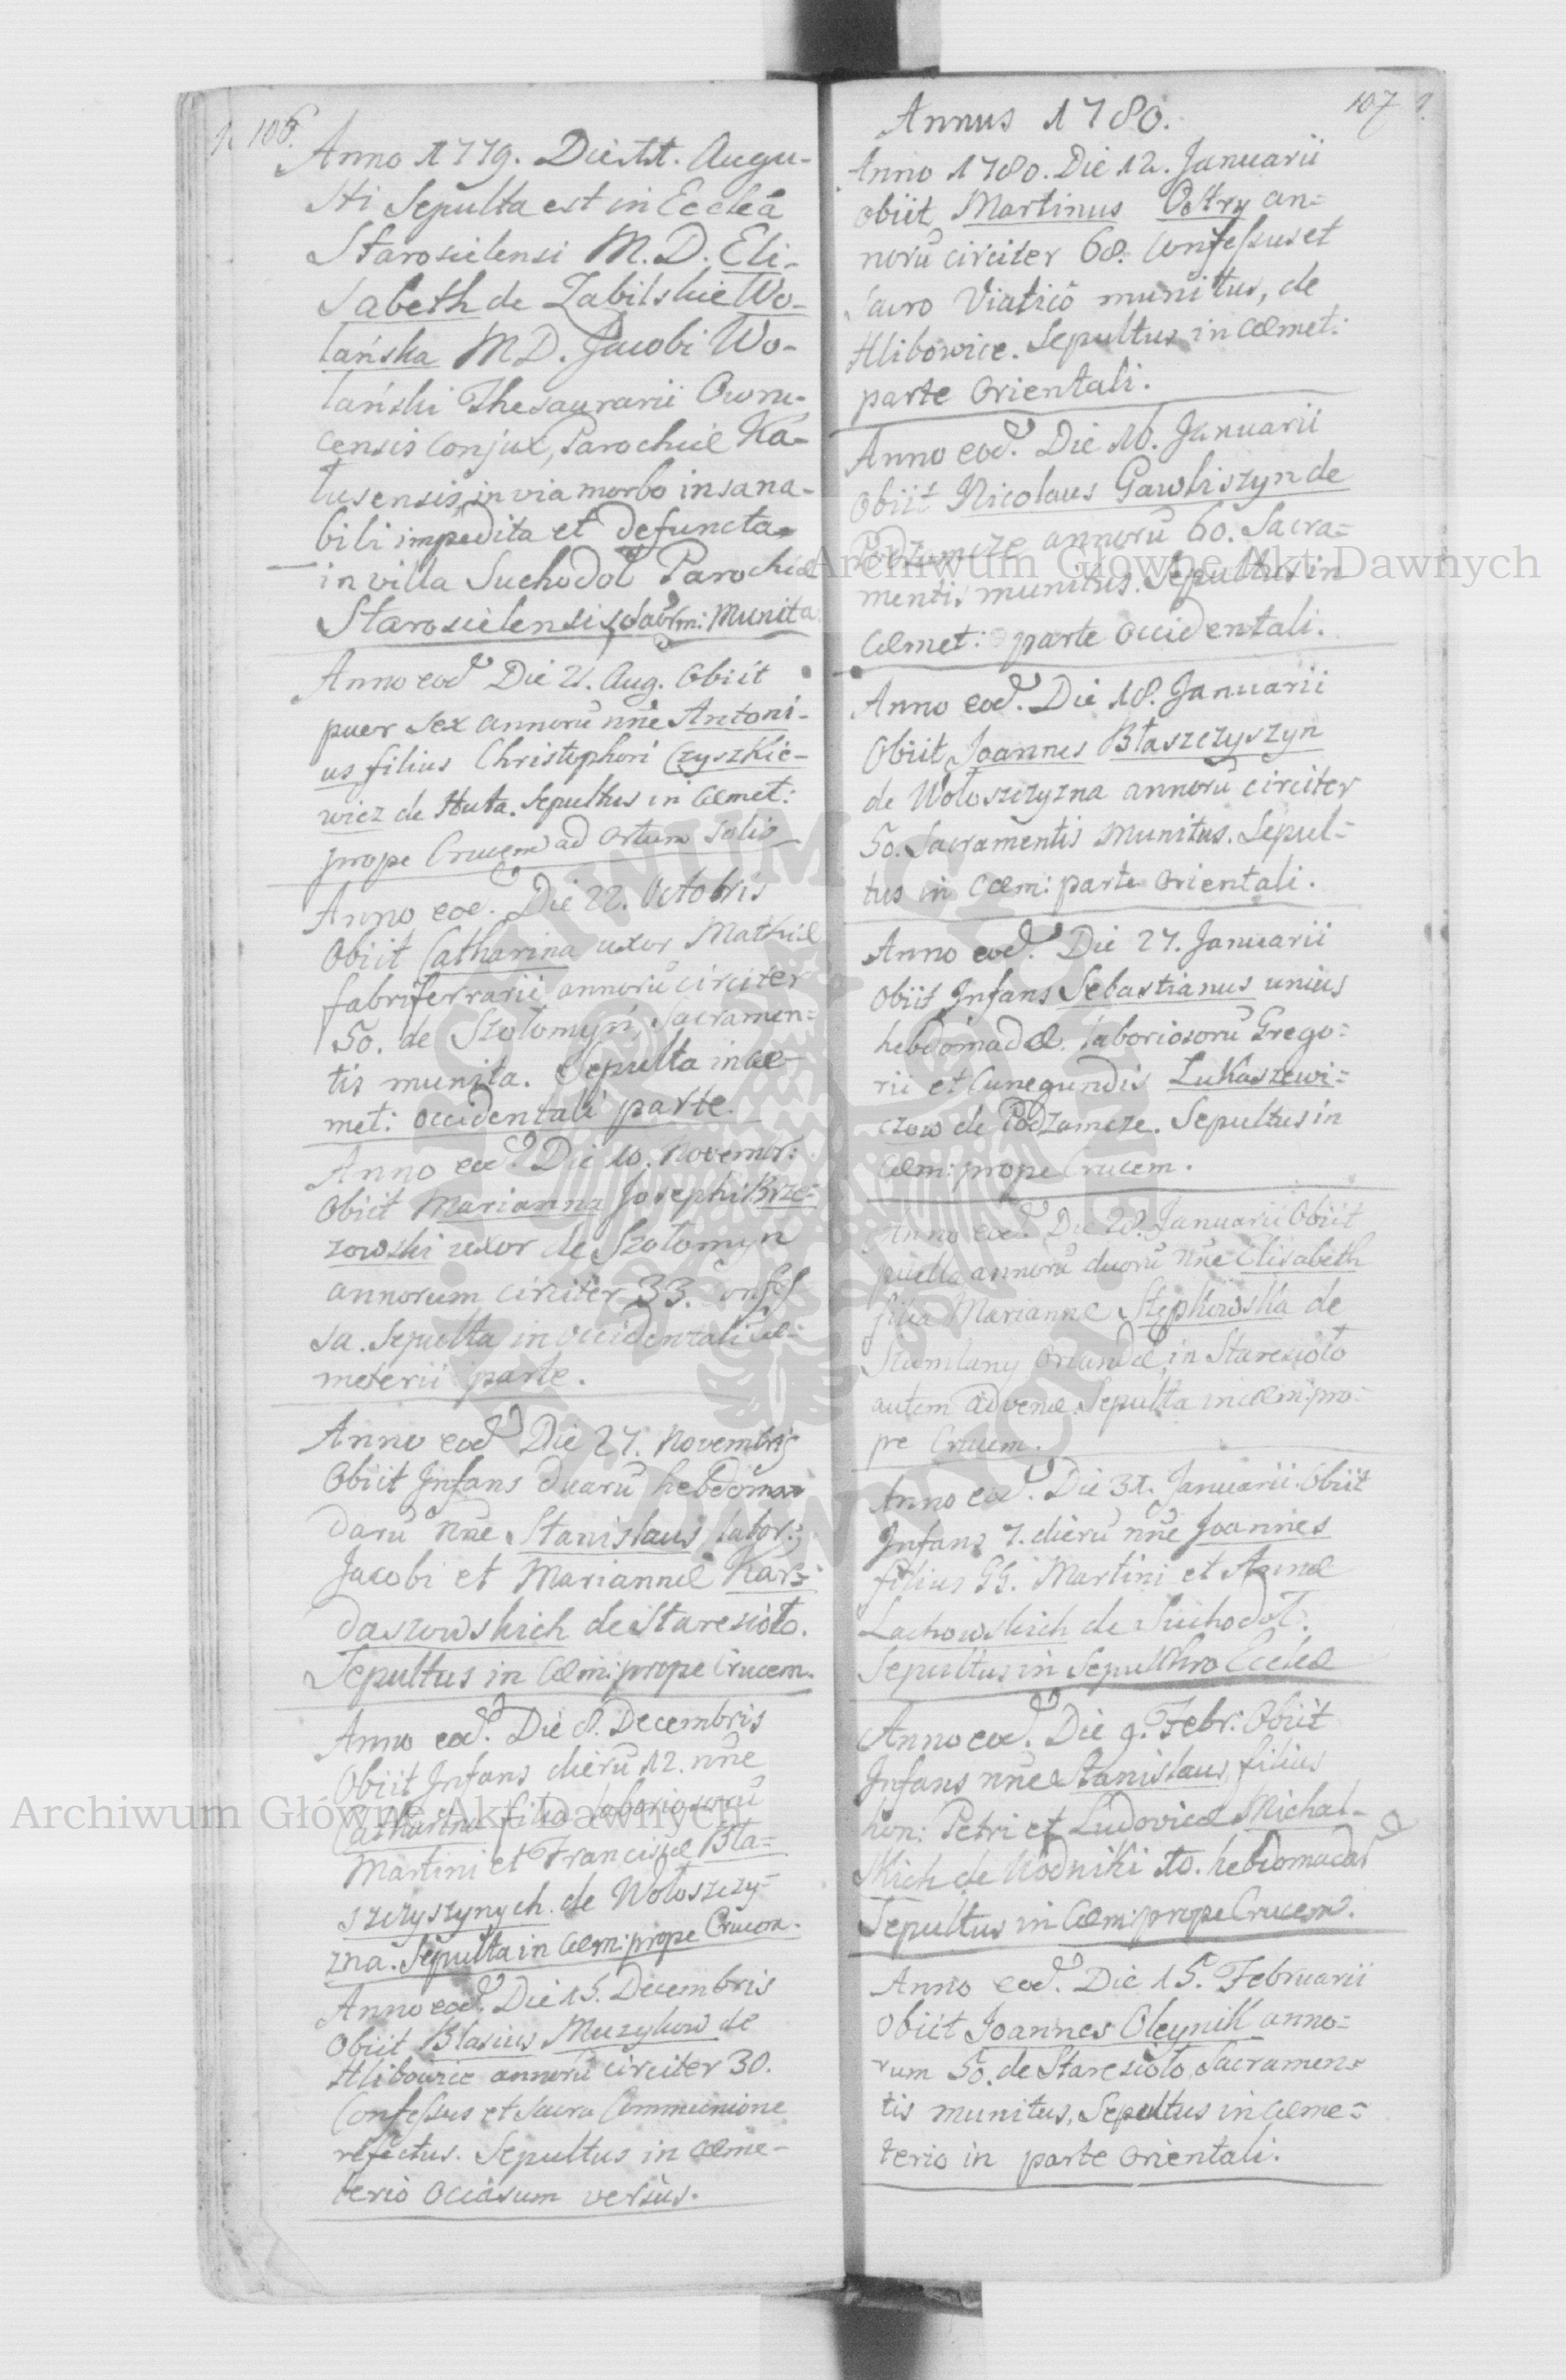 106.
Anno 1779. Die 11. Augu-
sti Sepulta est in Eccleã
Starosielensi M. D. Eli-
sabeth de Zabilskie Wo-
lańska M D. Jacobi Wo-
lański Thesaurarii Owru-
censis conjux, Parochiæ Ka-
lusensis, in via morbo insana-
bili impedita et defuncta
in villa Suchodoł Parochiæ
Starosielensis, Sacrm: Munita
Anno eod. Die 21. Aug. Obiit
puer sex annorũ nñe Antoni-
us filius Christophori Czyszkie-
wicz de Huta. Sepultus in Cæmet:
prope Crucem ad ortum solis
Anno eod. Die 22. Octobris
Obiit Catharina uxor Mathiæ
fabriferrarii annorũ circiter
50. de Szołomyń, Sacramen=
tis munita. Sepulta in Cæ-
met: occidentali parte.
Anno eod. Die 10. Novembr:
Obiit Marianna Josephi Brze=
zowski uxor de Szołomyn
annorum circiter 33. Confes
sa. Sepulta in occidentali Cæ-
meterii parte.
Anno eod. Die 27. Novembris
Obiit Infans duarũ hebdoma
darũ nñe Stanislaus labor:
Jacobi et Mariannæ Kar=
daszowskich de Staresioło.
Sepultus in Cæm: prope Crucem.
Anno eod. Die 8. Decembris
Obiit Infans dierũ 12. nñe
Catharina filia laboriosorũ
Martini et Franciscæ Bła=
szczyszynych de Wołoszczy=
zna. Sepulta in Cæm: prope Crucem.
Anno eod. Die 15. Decembris
Obiit Blasius Muzykow de
Hlibowice annorũ circiter 30.
Confessus et Sacra Communione
refectus. Sepultus in Cæme-
terio Occasum versus.
107
Annus 1780.
Anno 1780. Die 12. Januarii
obiit Martinus Ostry an=
norũ circiter 68. Confessus et
Sacro Viatico munitus, de
Hlibowice. Sepultus in Cæmet:
parte Orientali.
Anno eod. Die 16. Januarii
Obiit Nicolaus Gawliszyn de
Podzamcze annorũ 60. Sacra=
mentis munitus. Sepultus in
Cæmet: parte occidentali.
Anno eod. Die 18. Januarii
Obiit Joannes Błaszczyszyn
de Wołoszczyzna annorũ circiter
50. Sacramentis munitus. Sepul=
tus in Cæm: parte Orientali.
Anno eod. Die 27. Januarii
Obiit Infans Sebastianus unius
hebdomadæ laboriosorũ Grego=
rii et Cunegundis Łukaszewi=
czow de Podzamcze. Sepultus in
Cæm: prope Crucem.
Anno eod. Die 28. Januarii Obiit
puella annorũ duorũ nñe Elisabeth
filia Mariannæ Stępkowska de
oriundæ, in Staresioło
autem advenæ. Sepulta in cæm: pro=
pe Crucem.
Anno eod. Die 31. Januarii Obiit
Infans 7. dierũ nñe Joannes
filius GG. Martini et Annæ
Lachowskich de Suchodoł.
Sepultus in Sepulchro Eccleæ
Anno eod. Die 9. Febr: Obiit
Infans nñe Stanislaus filius
hon: Petri et Ludovicæ Michal-
skich de Wodniki 10. hebdomadarũ
Sepultus in Cæm: prope Crucem.
Anno eod. Die 15. Februarii
Obiit Joannes Oleynik anno=
rum 50. de Staresioło, Sacramen=
tis munitus, Sepultus in cæme=
terio in parte orientali.
Archiwum Główne Akt Dawnych
Archiwum Główne Akt Dawnych
ARCHIWUM GŁÓWNE AKT DAWNYCH